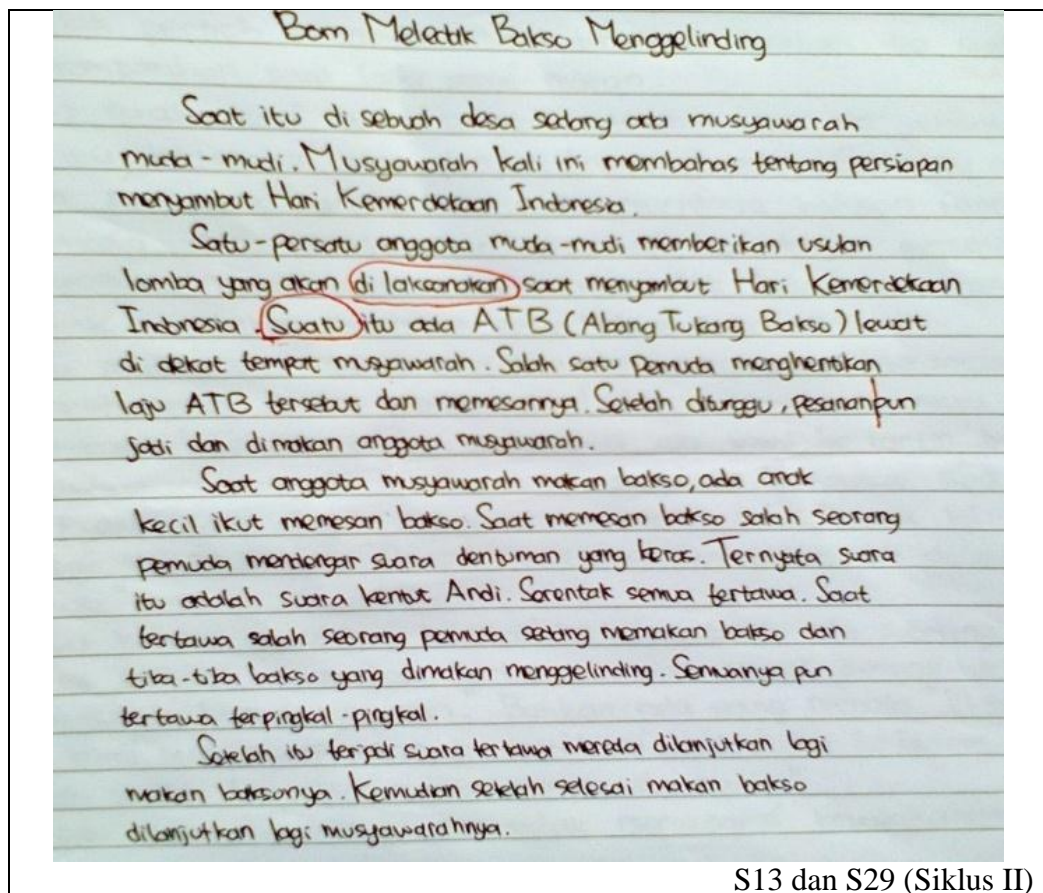 Bom Meletik Bakso Menggelinding
Saat itu di sebuah desa sedang ada musyawarah
muda-mudi. Musyawarah kali ini membahas tentang persiapan
menyambut Hari Kemerdekaan Indonesia.
Satu-persatu anggota muda-mudi memberikan usulan
lomba yang akan di laksanakan saat menyambut Hari Kemerdekaan
Indonesia. Suatu itu ada ATB (Abang Tukang Bakso) lewat
di dekat tempat musyawarah. Salah satu Pemuda menghentikan
laju ATB tersebut dan memesannya. Setelah ditunggu, pesananpun
jadi dan dimakan anggota musyawarah.
Saat anggota musyawarah makan bakso, ada anak
kecil ikut memesan bakso. Saat memesan bakso salah seorang
pemuda mendengar suara dentuman yang keras. Ternyata suara
itu adalah suara kentut Andi. Sarentak semua tertawa. Saat
tertawa salah seorang pemuda sedang memakan bakso dan
tiba-tiba bakso yang dimakan menggelinding. Semuanya pun
tertawa terpingkal-pingkal.
Setelah itu terjadi suara tertawa mereda dilanjutkan lagi
makan baksonya. Kemudian setelah selesai makan bakso
dilanjutkan lagi musyawarahnya.
S13 dan S29 (Siklus II)